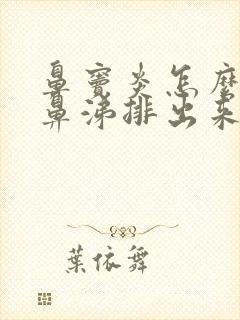 鼻窦炎怎麼
鼻涕排出來
葉依舞